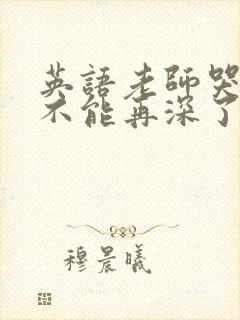 英語老師哭
不能再深了
穆晨曦